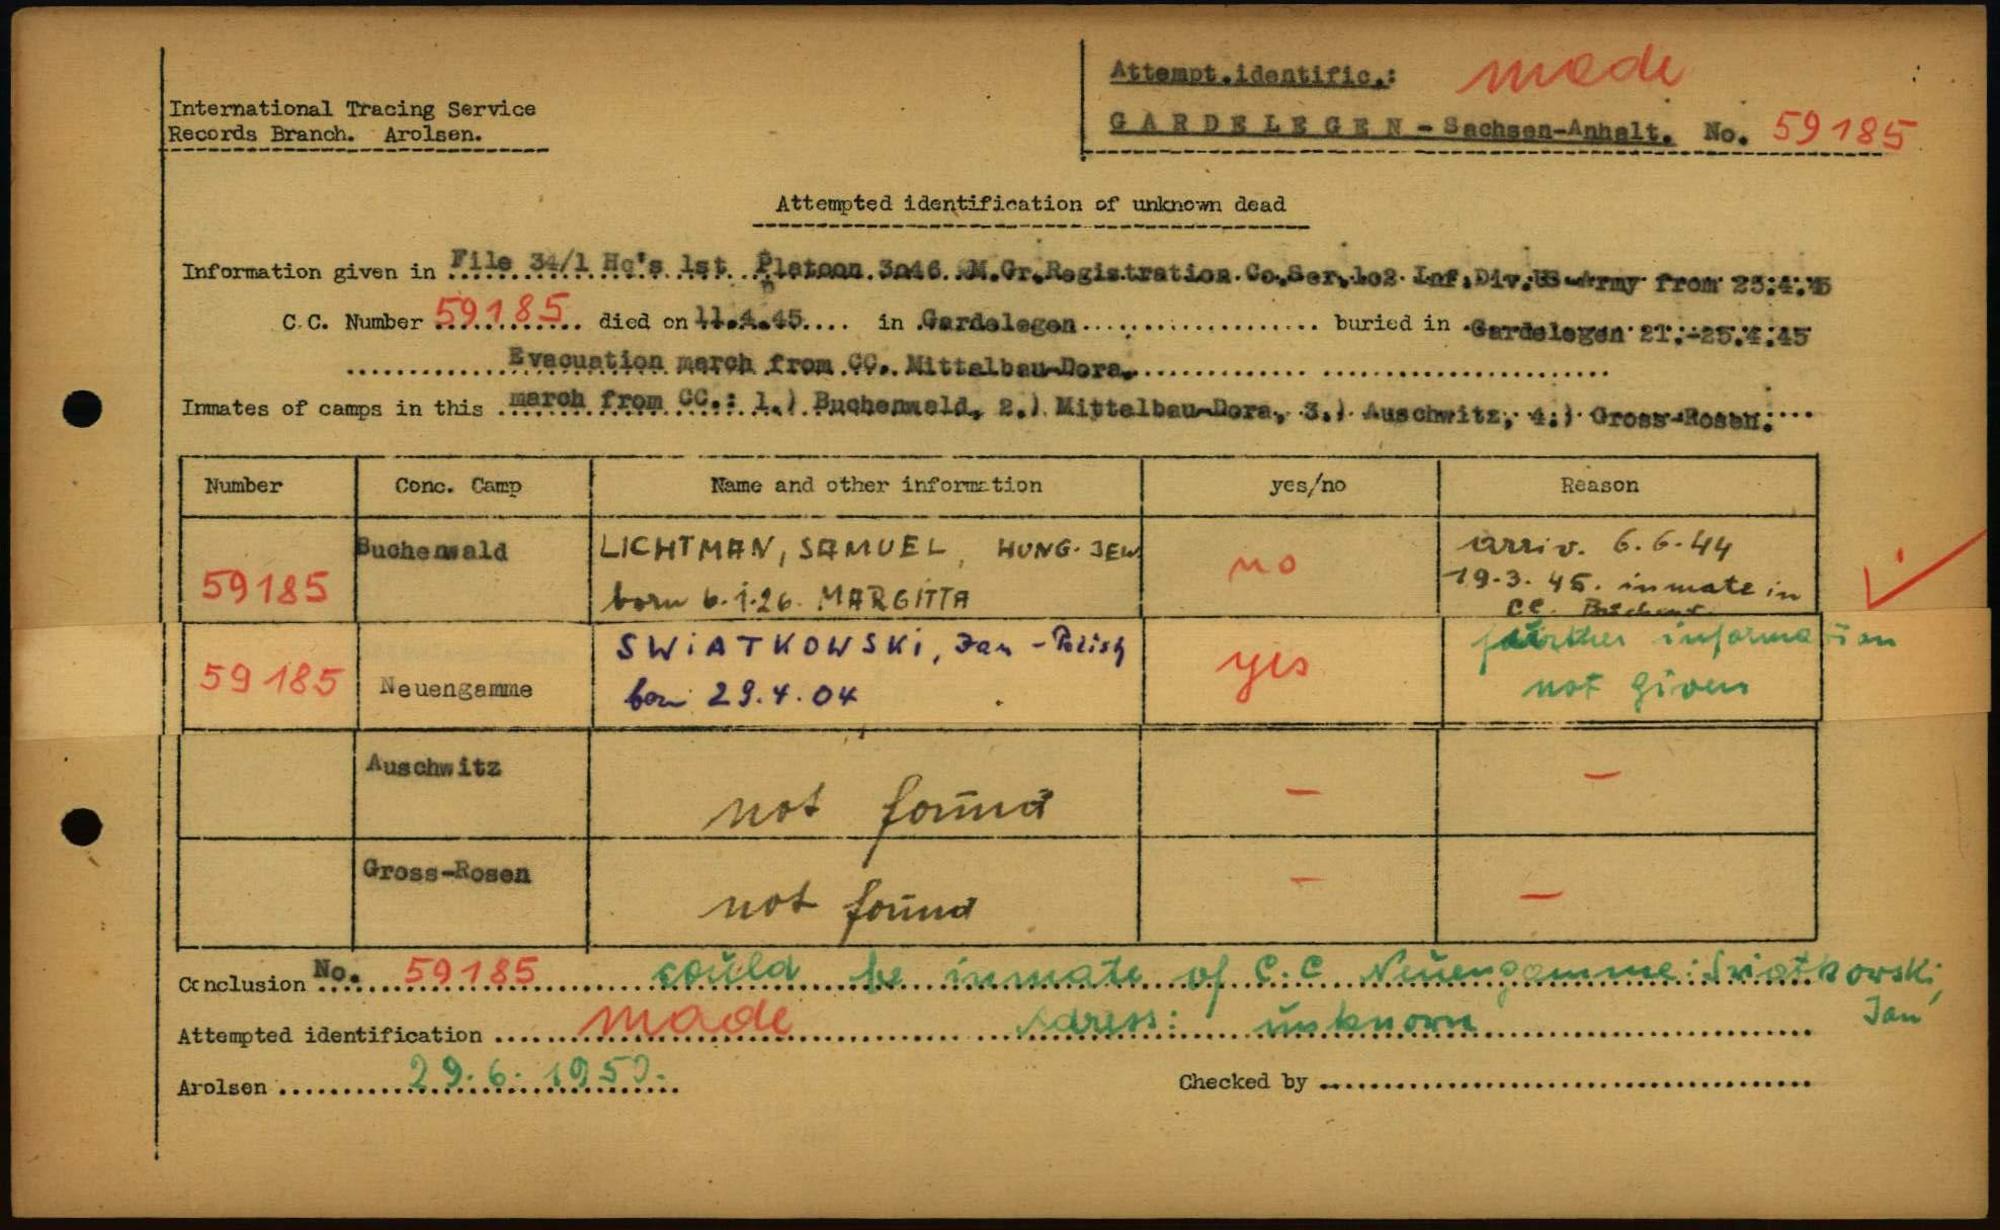 Attempt.identific.: made
International Tracing Service
Records Branch. Arolsen.
GARDELEGEN - Sachsen-Anhalt. No. 59185
Attempted identification of unknown dead
Information given in File 34/1 Hq's 1st Platoon 3046 .M.Gr.Registration Co.Ser.102 Inf.Div.US-Army from 25.4.45
C.C. Number 59185 died on 11.4.45 in Gardelegen buried in Gardelegen 21.-25.4.45
Evacuation march from CC. Mittelbau-Dora.
Inmates of camps in this march from CC.: 1.) Buchenwald, 2.) Mittelbau-Dora, 3.) Auschwitz, 4.) Gross-Rosen.
Number Conc. Camp Name and other information yes/no Reason
59185 Buchenwald LICHTMAN, SAMUEL, HUNG. JEW no arriv. 6.6.44
born 6.1.26. MARGITTA 19.3.45. inmate in
CC. Buchenw.
59185 Neuengamme SWIATKOWSKI, Jan - Polish yes further information
born 29.4.04 not given
Auschwitz not found — —
Gross-Rosen not found — —
Conclusion No. 59185 could be inmate of C.C Neuengamme: Swiatkowski,
Jan
Attempted identification made Adress: unknown
Arolsen 29.6.1950. Checked by